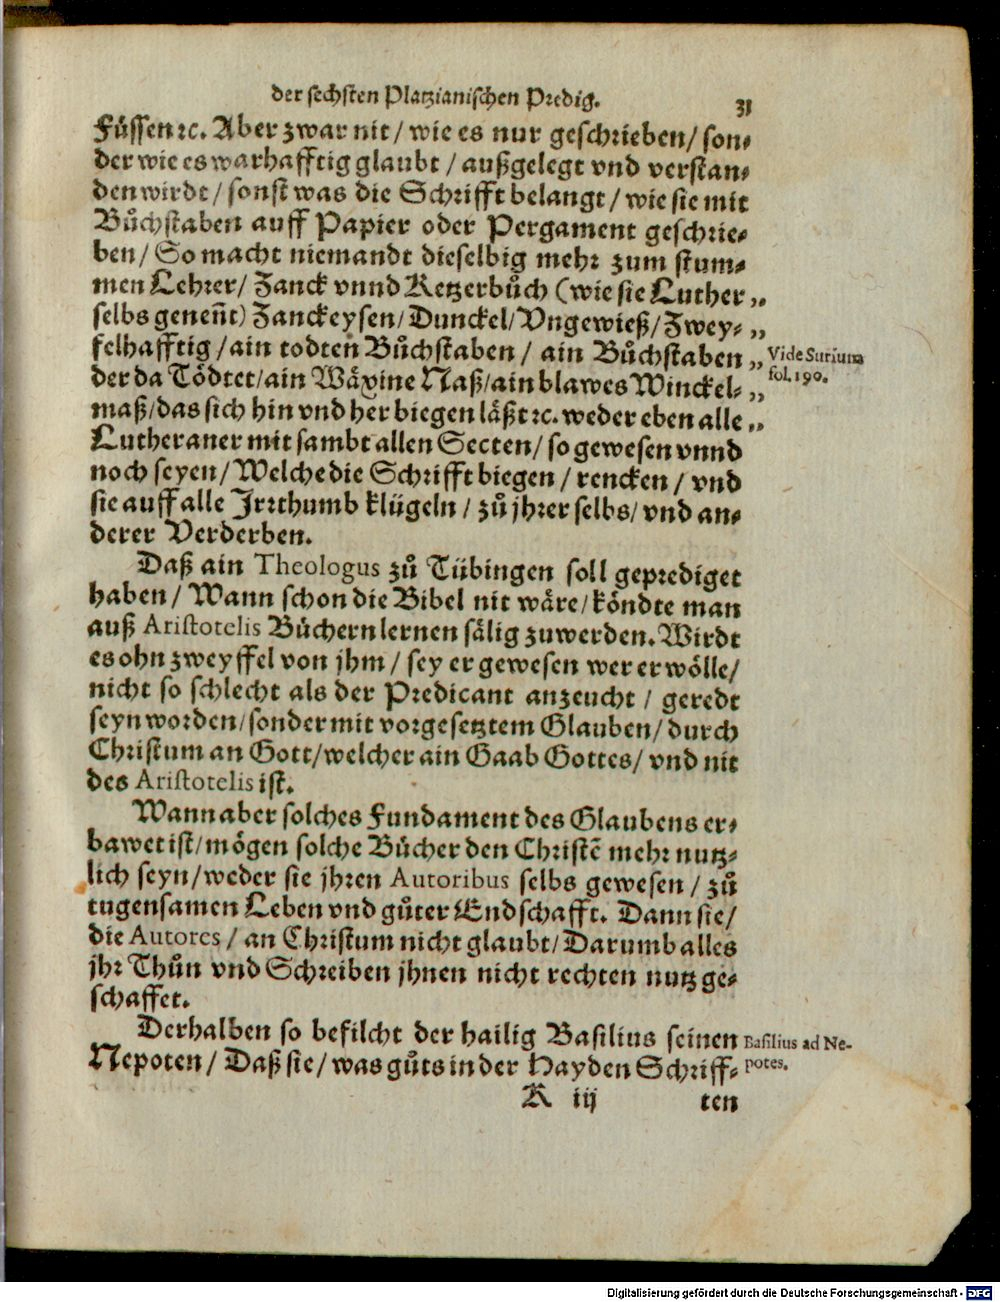 der sechsten Platzianischen Predig. 31
Füssen ꝛc. Aber zwar nit / wie es nur geschrieben / son⸗
der wie es warhafftig glaubt / außgelegt vnd verstan⸗
den wirdt / sonst was die Schrifft belangt / wie sie mit
Bůchstaben auff Papier oder Pergament geschrie⸗
ben / So macht niemandt dieselbig mehr zum stum⸗
men Lehrer / Zanck vnnd Ketzerbůch (wie sie Luther „
selbs geneñt) Zanckeysen / Dunckel / Vngewieß / Zwey⸗ „
felhafftig / ain todten Bůchstaben / ain Bůchstaben „
Vide Surium
fol. 190.
der da Tödtet / ain Wäxine Naß / ain blawes Winckel⸗ „
maß / das sich hin vnd her biegen läßt ꝛc. weder eben alle „
Lutheraner mit sambt allen Secten / so gewesen vnnd
noch seyen / Welche die Schrifft biegen / rencken / vnd
sie auff alle Irrthumb klügeln / zů jhrer selbs / vnd an⸗
derer Verderben.
Daß ain Theologus zů Tübingen soll geprediget
haben / Wann schon die Bibel nit wäre / köndte man
auß Aristotelis Büchern lernen sälig zuwerden. Wirdt
es ohn zweyffel von jhm / sey er gewesen wer er wölle /
nicht so schlecht als der Predicant anzeucht / geredt
seyn worden / sonder mit vorgesetztem Glauben / durch
Christum an Gott / welcher ain Gaab Gottes / vnd nit
des Aristotelis ist.
Wann aber solches Fundament des Glaubens er⸗
bawet ist / mögen solche Bücher den Christẽ mehr nutz⸗
lich seyn / weder sie jhren Autoribus selbs gewesen / zů
tugensamen Leben vnd gůter Endschafft. Dann sie /
die Autores / an Christum nicht glaubt / Darumb alles
jhr Thůn vnd Schreiben jhnen nicht rechten nutz ge⸗
schaffet.
Derhalben so befilcht der hailig Basilius seinen
Nepoten / Daß sie / was gůts in der Hayden Schriff⸗
Basilius ad Ne-
potes.
K iij ten
Digitalisierung gefördert durch die Deutsche Forschungsgemeinschaft - DFG